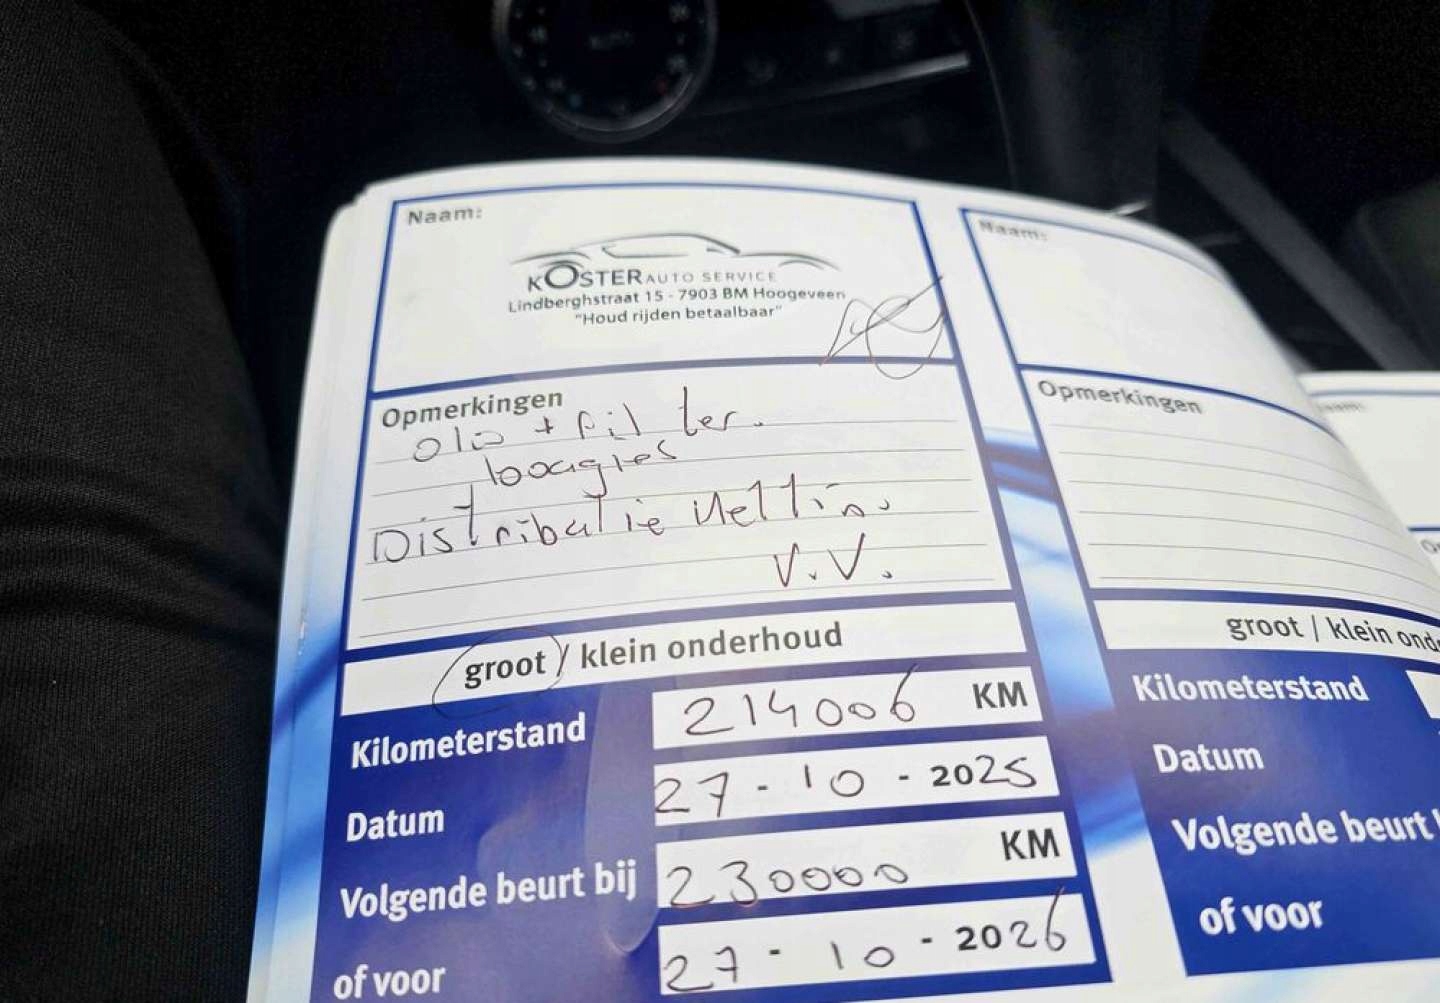 Naam:
KOSTER AUTO SERVICE
Lindberghstraat 15 - 7903 BM Hoogeveen
"Houd rijden betaalbaar"
Opmerkingen
olie + filter.
bougies
Distributie Kettin.
V.V.
groot / klein onderhoud
Kilometerstand 214006 KM
Datum 27-10-2025
Volgende beurt bij 230000 KM
of voor 27-10-2026
Naam:
Opmerkingen
groot / klein ond
Kilometerstand
Datum
Volgende beurt
of voor